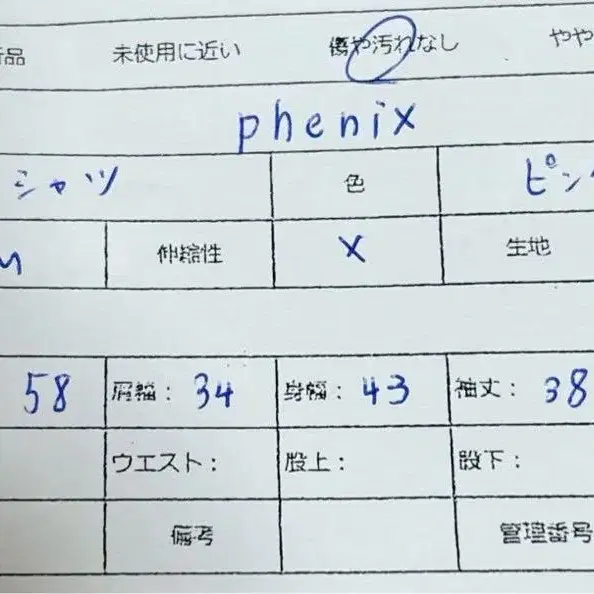 品 未使用に近い 傷や汚れなし やや
phenix
シャツ 色 ピン
M 伸縮性 X 生地
58 肩幅: 34 身幅: 43 袖丈: 38
ウエスト: 股上: 股下:
備考 管理番号